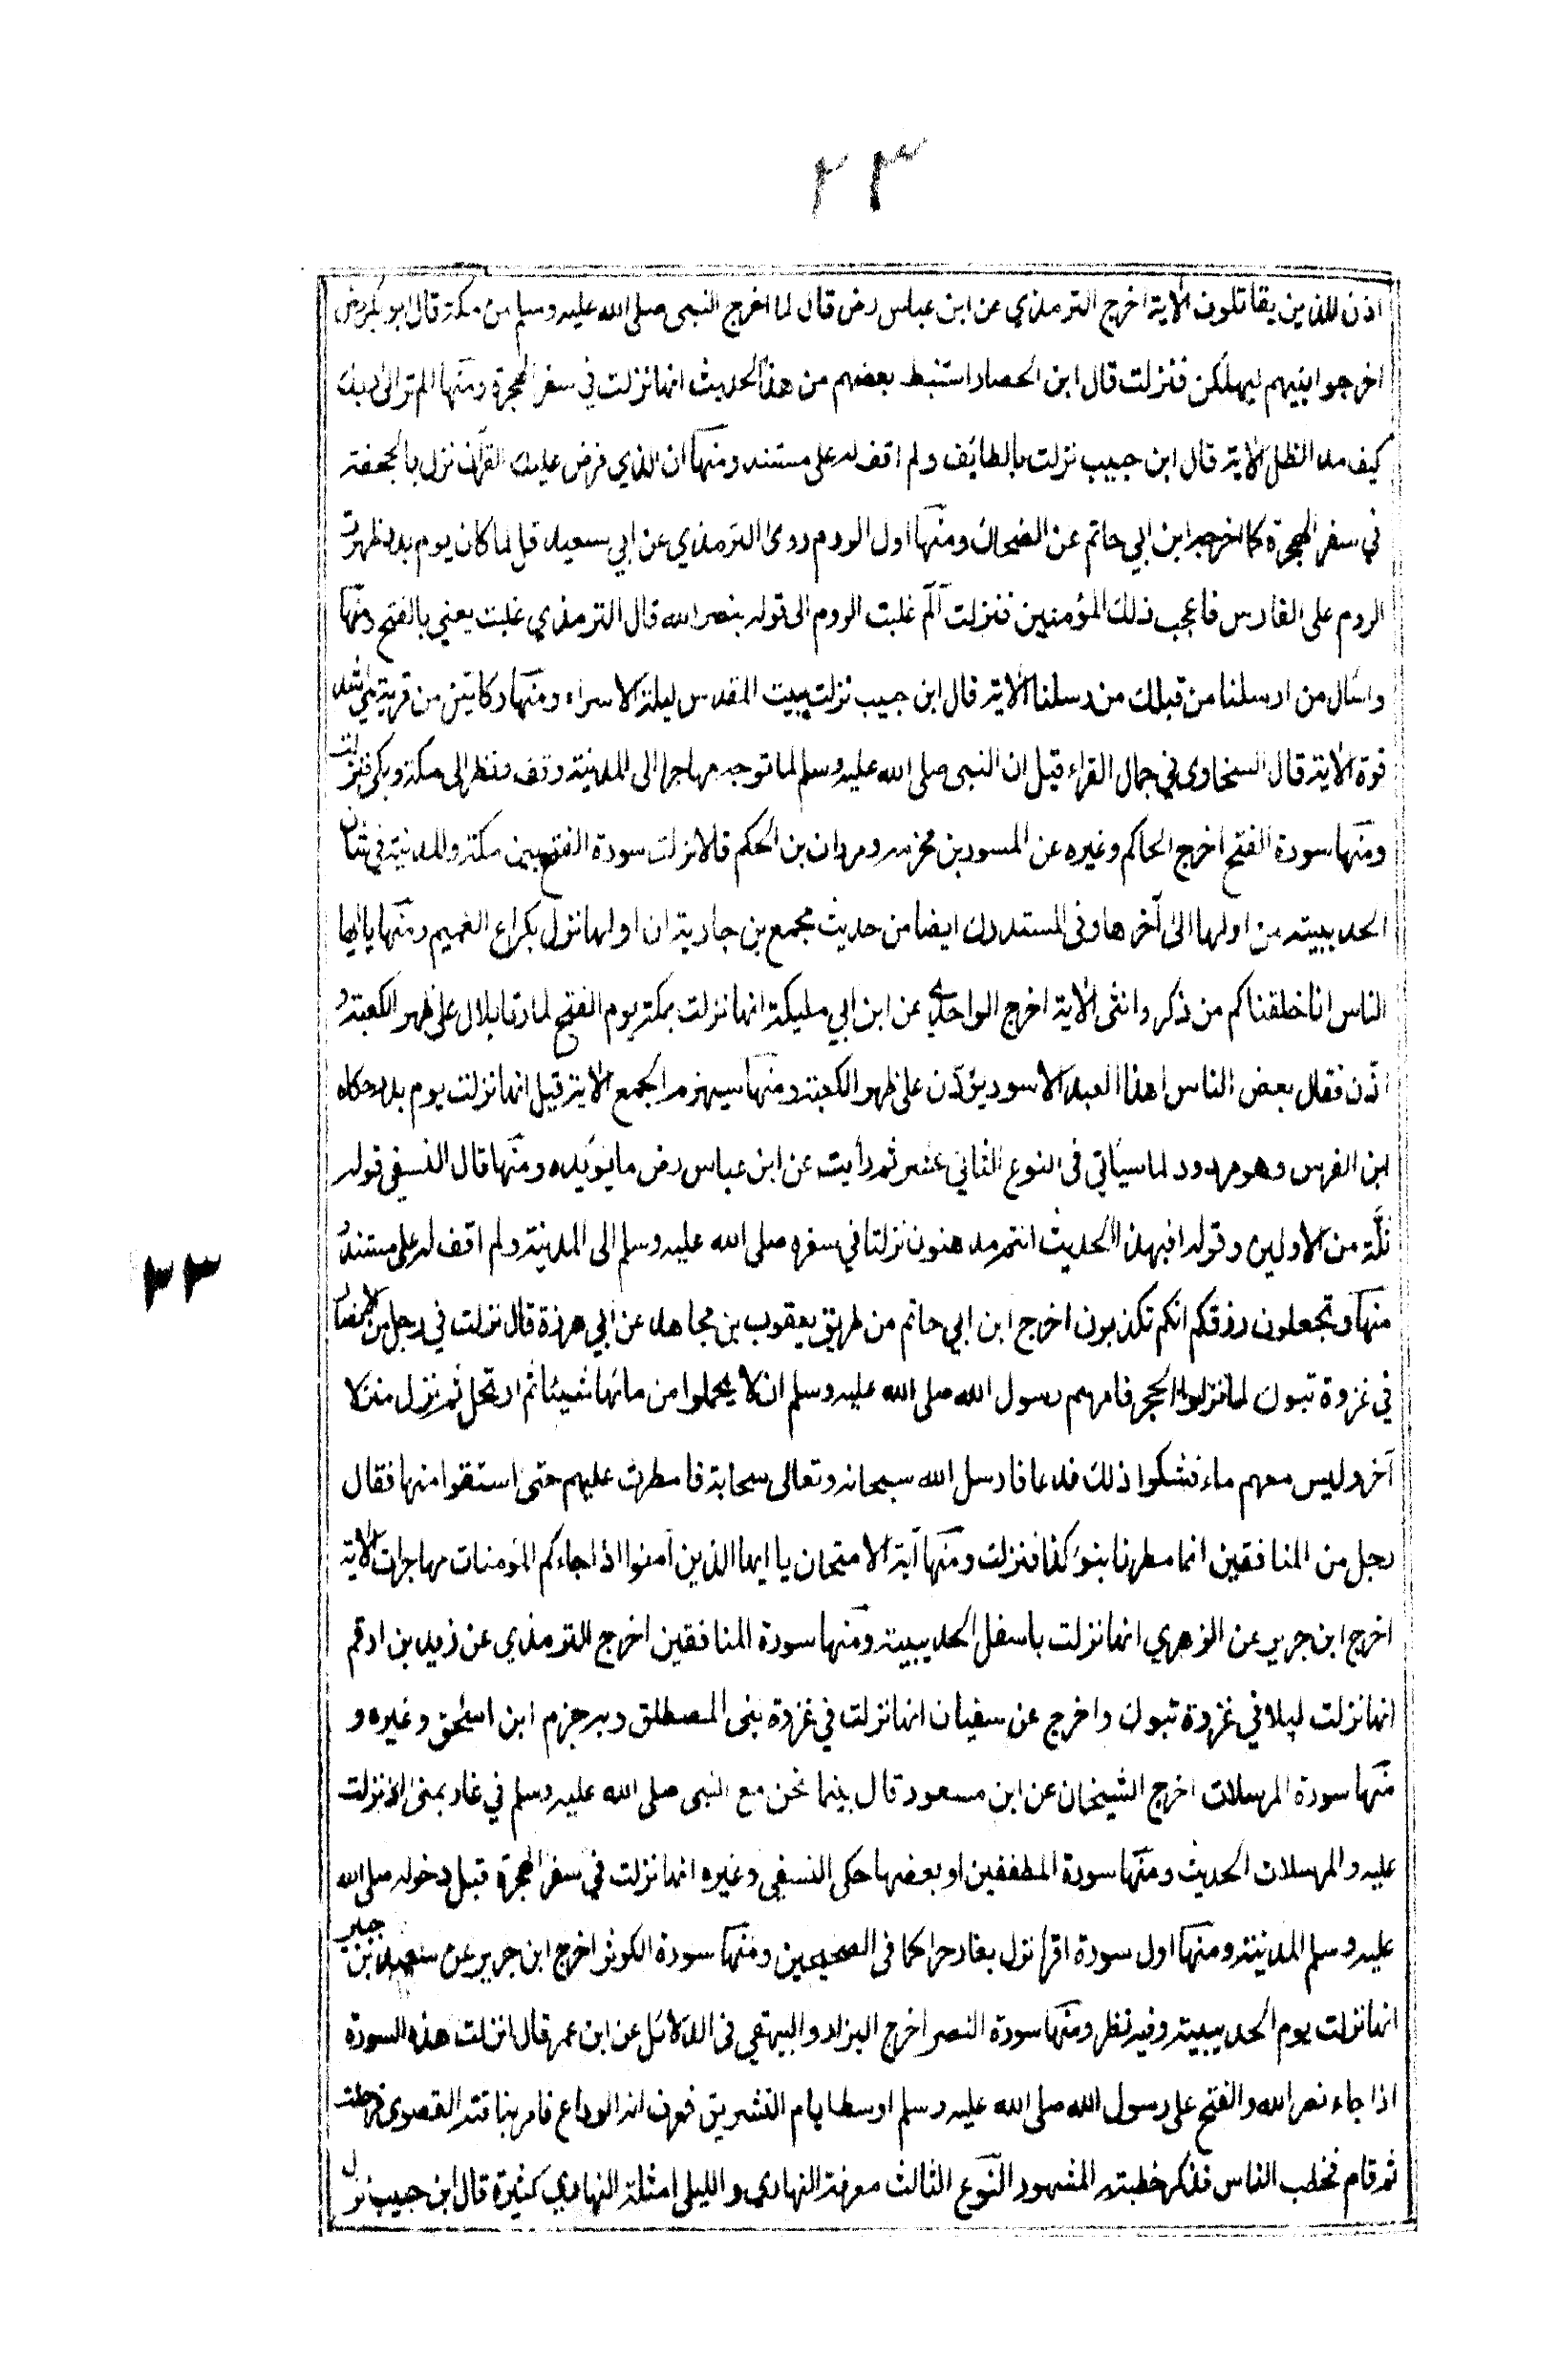 ٢٣
اذن للذين يقاتلون الاية اخرج الترمذي عن ابن عباس رض قال لما اخرج النبى صلى الله عليه وسلم من مكة قال ابو بكر رض
اخرجوا نبيهم ليهلكن فنزلت قال ابن الحصار استنبط بعضهم من هذا الحديث انها نزلت في سفر الهجرة ومنها الم تر الى ربك
كيف مد الظل الاية قال ابن حبيب نزلت بالطايف ولم اقف له على مستند ومنها ان الذي فرض عليك القرآن نزل بالجحفة
في سفر الهجرة كما اخرجه ابن ابي حاتم عن الضحاك ومنها اول الروم روى الترمذي عن ابي سعيد قل لما كان يوم بدر ظهرت
الروم على الفارس فاعجب ذلك المؤمنين فنزلت آلم غلبت الروم الى قوله بنصر الله قال الترمذي غلبت يعني بالفتح ومنها
واسال من ارسلنا من قبلك من رسلنا الاية قال ابن حبيب نزلت ببيت المقدس ليلة الاسراء ومنها وكاين من قرية هي اشد
قوة الاية قال السخاوى في جمال القراء قيل ان النبى صلى الله عليه وسلم لما توجه مهاجرا الى المدينة وقف ونظر الى مكة وبكى فنزلت
ومنها سورة الفتح اخرج الحاكم وغيره عن المسور بن مخرمه ومروان بن الحكم قالا نزلت سورة الفتح بين مكة والمدينة في شان
الحديبية من اولها الى آخرها وفى المستدرك ايضا من حديث مجمع بن جارية ان اولها نزل بكراع الغميم ومنها يا ايها
الناس انا خلقناكم من ذكر وانثى الاية اخرج الواحدي عن ابن ابي مليكة انها نزلت بمكة يوم الفتح لما رقا بلال على ظهر الكعبة و
اذن فقال بعض الناس اهذا العبد الاسود يؤذن على ظهر الكعبة ومنها سيهزم الجمع الاية قيل انها نزلت يوم بدر حكاه
ابن الفرس وهو مردود لما سيأتي فى النوع الثاني عشر ثم رأيت عن ابن عباس رض ما يويده ومنها قال النسفي قوله
ثلة من الاولين وقوله افبهذا الحديث انتم مدهنون نزلتا في سفره صلى الله عليه وسلم الى المدينة ولم اقف له على مستند و
منها وتجعلون رزقكم انكم تكذبون اخرج ابن ابي حاتم من طريق يعقوب بن مجاهد عن ابي حرزة قال نزلت في رجل من الانصار
في غزوة تبوك لما نزلوا الحجر فامرهم رسول الله صلى الله عليه وسلم ان لا يحملوا من مائها شيئا ثم ارتحل ثم نزل منزلا
آخر وليس معهم ماء فشكوا ذلك فدعا فارسل الله سبحانه وتعالى سحابة فامطرت عليهم حتى استقوا منها فقال
رجل من المنافقين انما مطرنا بنوء كذا فنزلت ومنها آية الامتحان يا ايها الذين آمنوا اذا جاءكم المؤمنات مهاجرات الاية
اخرج ابن جرير عن الزهري انها نزلت باسفل الحديبية ومنها سورة المنافقين اخرج الترمذي عن زيد بن ارقم
انها نزلت ليلا في غزوة تبوك واخرج عن سفيان انها نزلت في غزوة بنى المصطلق وبه جزم ابن اسحق وغيره و
منها سورة المرسلات اخرج الشيخان عن ابن مسعود قال بينما نحن مع النبى صلى الله عليه وسلم في غار بمنى اذ نزلت
عليه والمرسلات الحديث ومنها سورة المطففين او بعضها حكى النسفي وغيره انها نزلت في سفر الهجرة قبل دخوله صلى الله
عليه وسلم المدينة ومنها اول سورة اقرا نزل بغار حرا كما فى الصحيحين ومنها سورة الكوثر اخرج ابن جرير عن سعيد بن جبير
انها نزلت يوم الحديبية وفيه نظر ومنها سورة النصر اخرج البزار والبيهقي فى الدلائل عن ابن عمر قال انزلت هذه السورة
اذا جاء نصر الله والفتح على رسول الله صلى الله عليه وسلم اوسط ايام التشريق فعرف انه الوداع فامر بناقته القصوى فرحلت
ثم قام فخطب الناس فذكر خطبته المشهور النوع الثالث معرفة النهاري والليلى امثلة النهاري كثيرة قال ابن حبيب نزل
٢٣